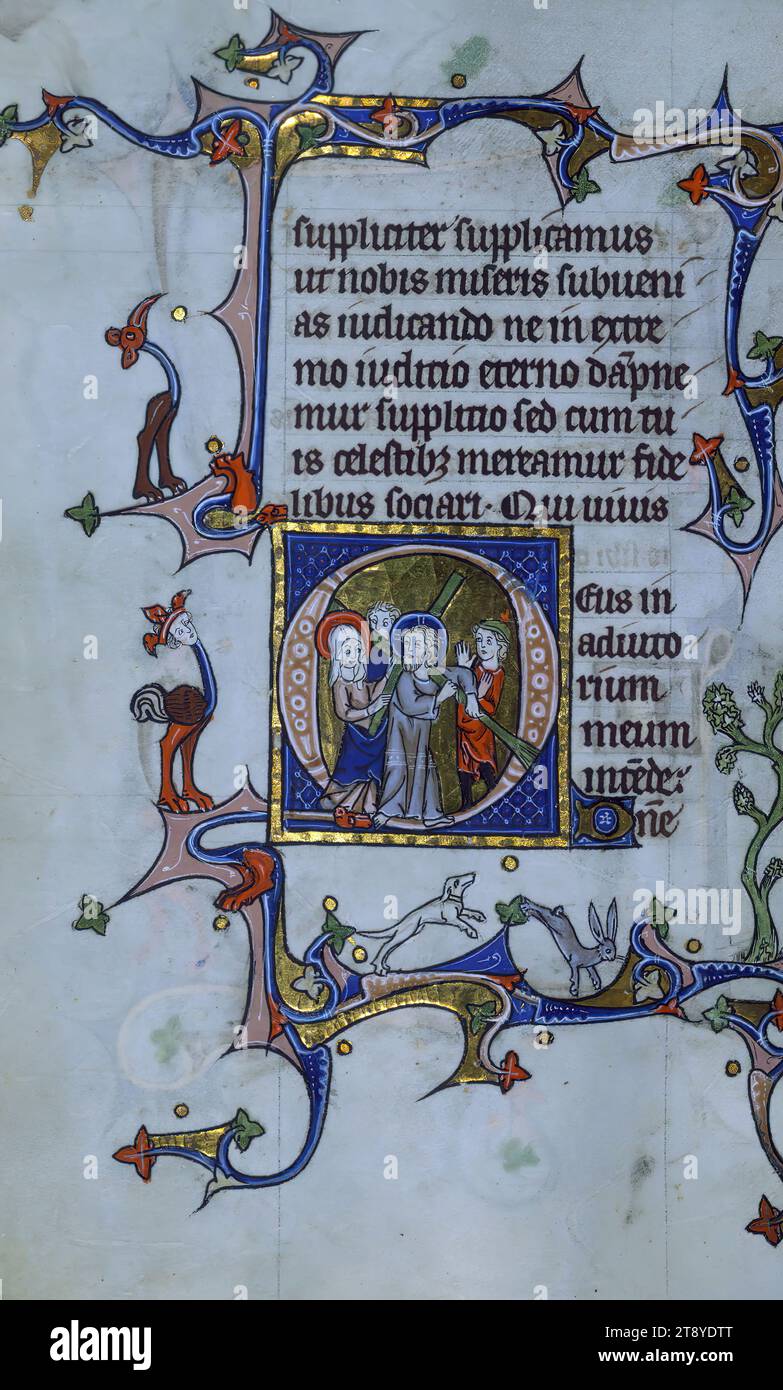 suppliciter supplicamus
ut nobis miseris subueni
as iudicando ne in extre
mo iudicio eterno dāpne
mur supplitio sed cum tu
is celestibꝫ mereamur fide
libus sociari. Qui uiuis
Eus in
adiuto
rium
meum
intēde:
D n̄e
alamy
Image ID: 2T8YDTT
www.alamy.com